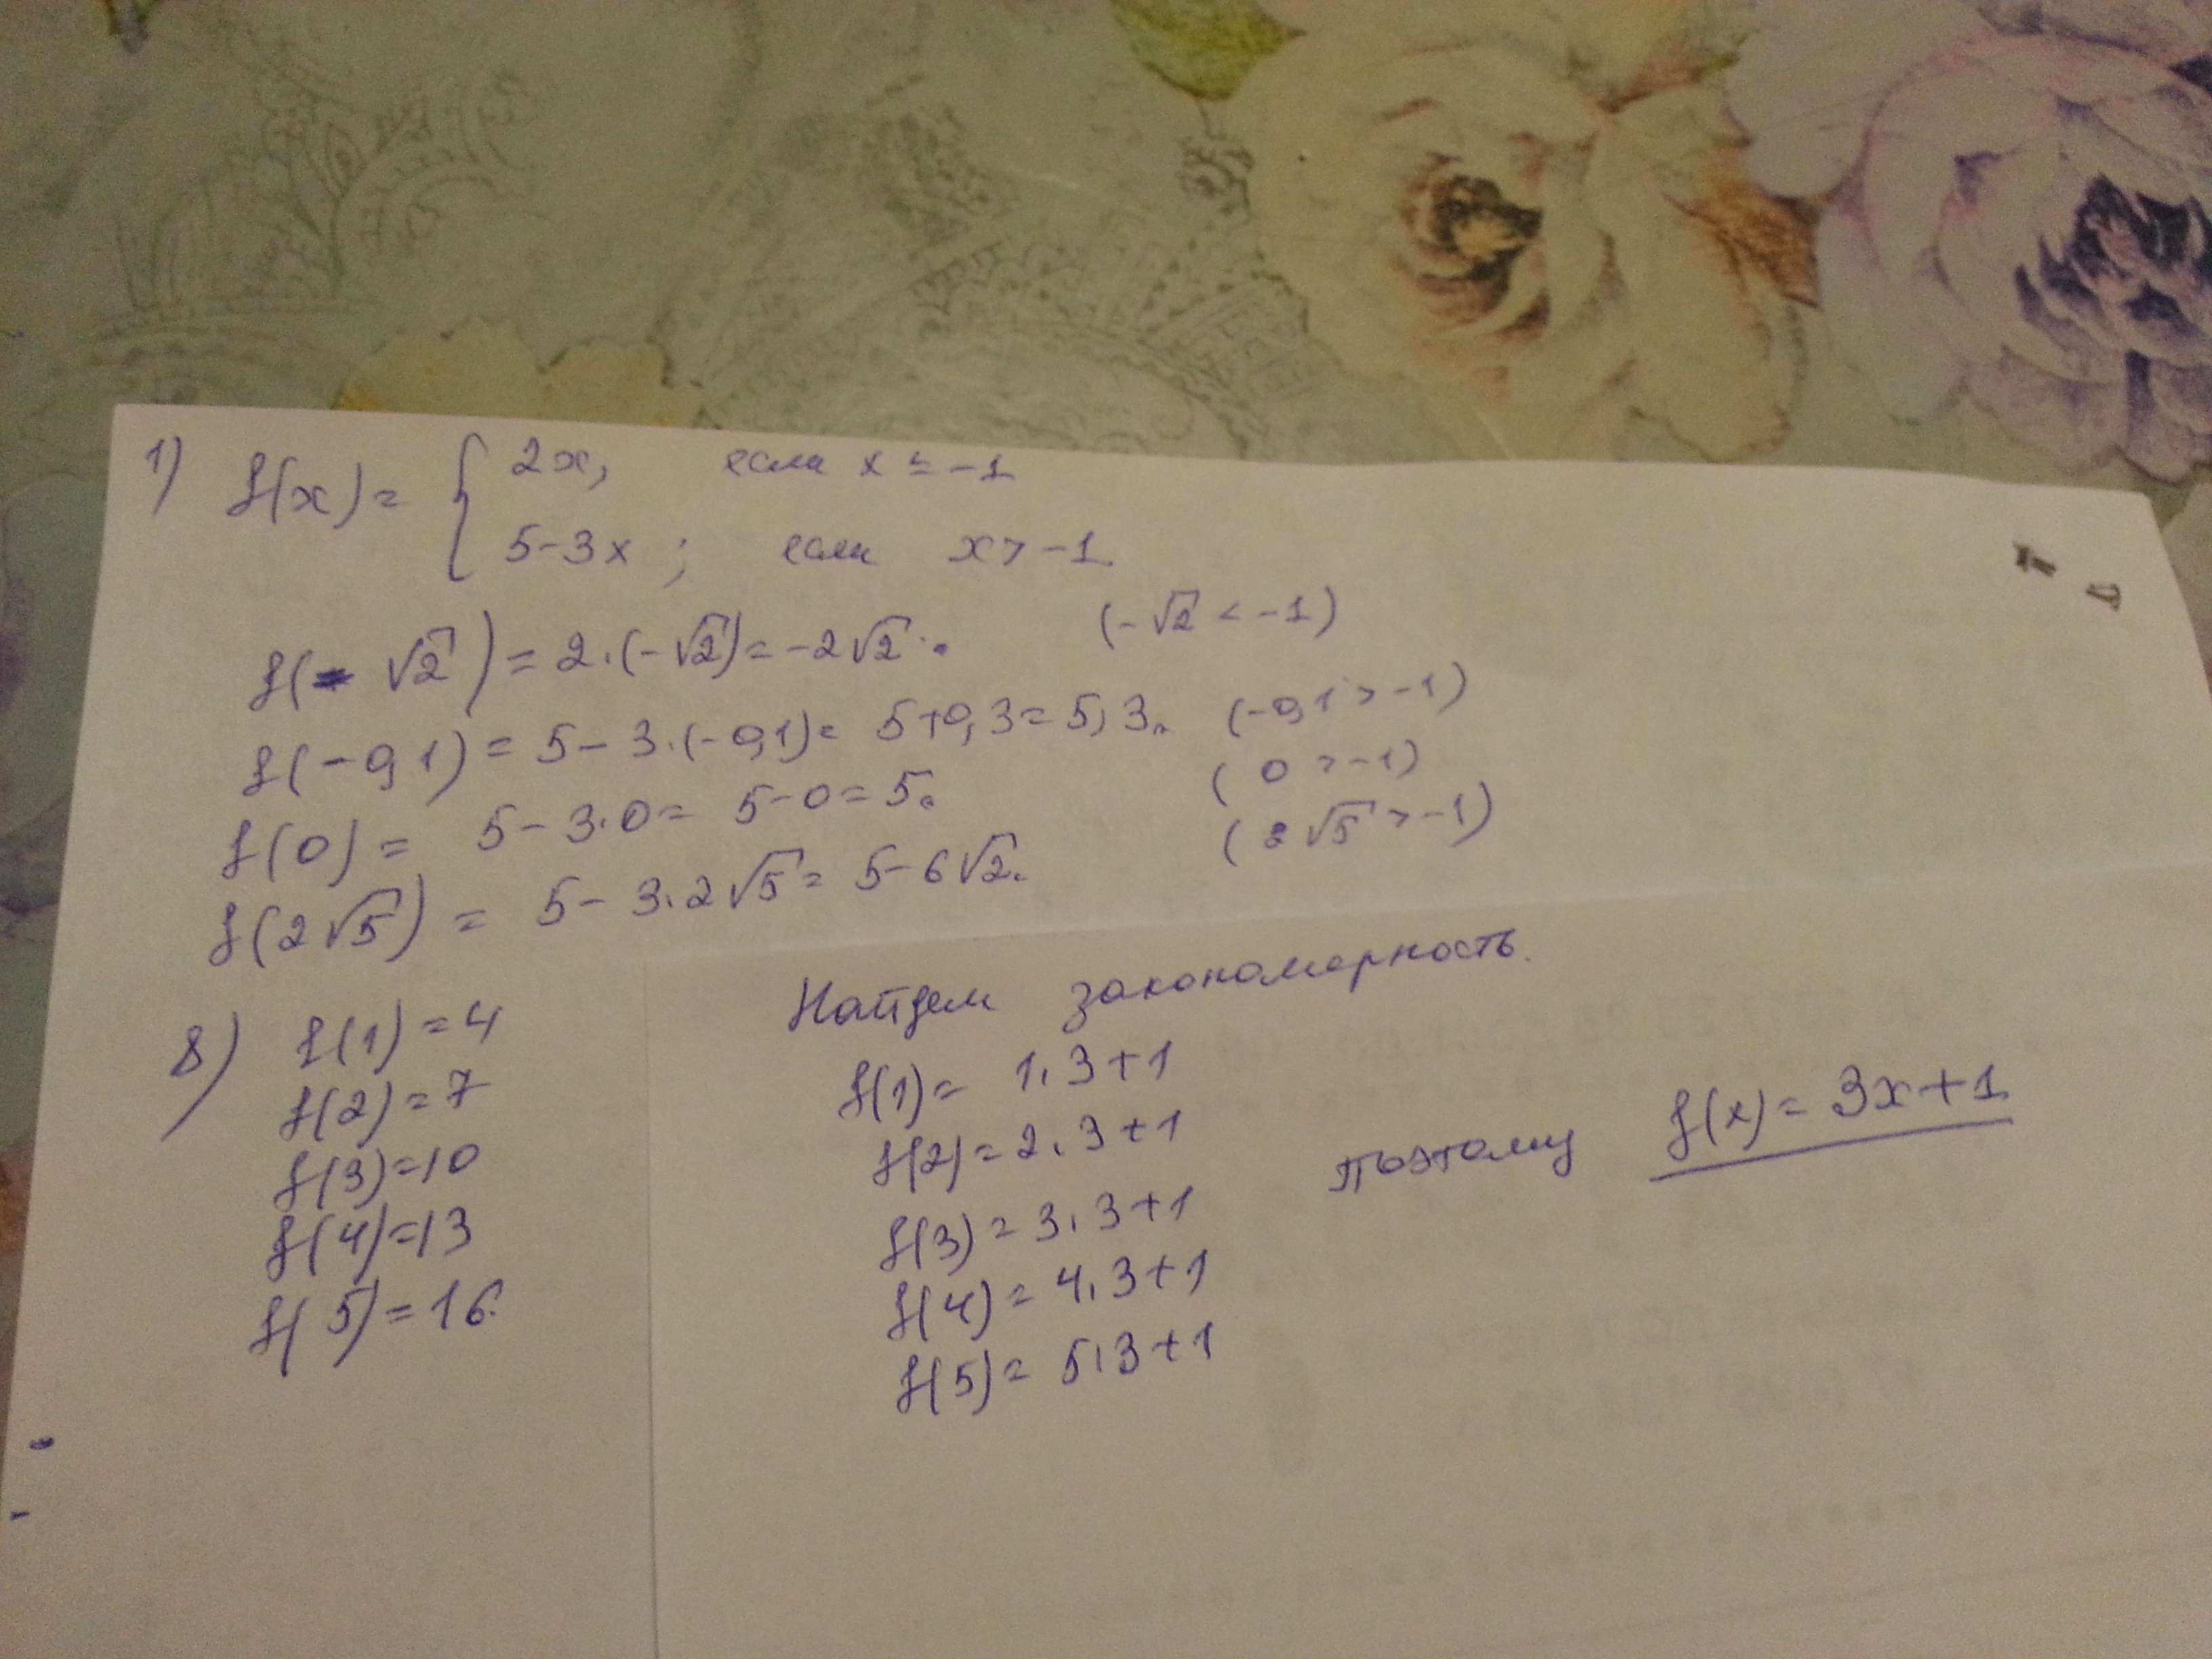 1) f(x) = { 2x, если x ≤ -1
5-3x; если x > -1
f(-√2) = 2·(-√2) = -2√2. (-√2 < -1)
f(-0,1) = 5-3·(-0,1) = 5+0,3 = 5,3. (-0,1 > -1)
f(0) = 5-3·0 = 5-0 = 5. (0 > -1)
f(2√5) = 5-3·2√5 = 5-6√2. (2√5 > -1)
8) f(1) = 4
f(2) = 7
f(3) = 10
f(4) = 13
f(5) = 16.
Найдем закономерность.
f(1) = 1·3+1
f(2) = 2·3+1
f(3) = 3·3+1
f(4) = 4·3+1
f(5) = 5·3+1
поэтому f(x) = 3x+1